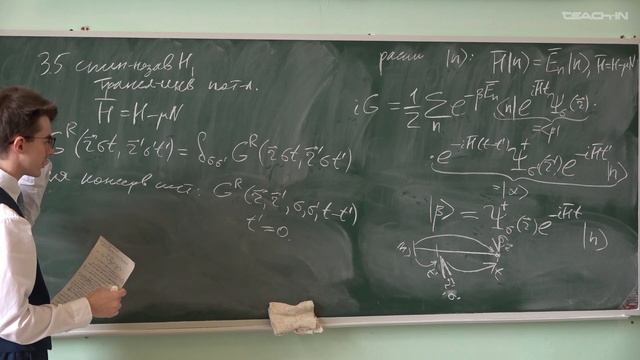 TEACH-IN
35 спин-незав H,
Трансл-инв пот-л.
H̅ = H-μN
G^R(r⃗σt, r⃗'σ't') = δ_σσ' G^R(r⃗σt, r⃗'σt')
консерв сист: G^R(r⃗, r⃗', σ, σ', t-t')
t' = 0.
|n⟩: H̅|n⟩ = E̅_n|n⟩, H̅=H-μN
iG = 1/2 Σ_n e^{-βE̅_n} ⟨n|e^{iH̅t} Ψ_σ(r⃗)·
=⟨β|
·e^{-iH̅(t-t')} Ψ^†_σ(r⃗') e^{-iH̅t'} |n⟩
=|α⟩
|β⟩ = Ψ^†_σ(r⃗) e^{-iH̅t} |n⟩